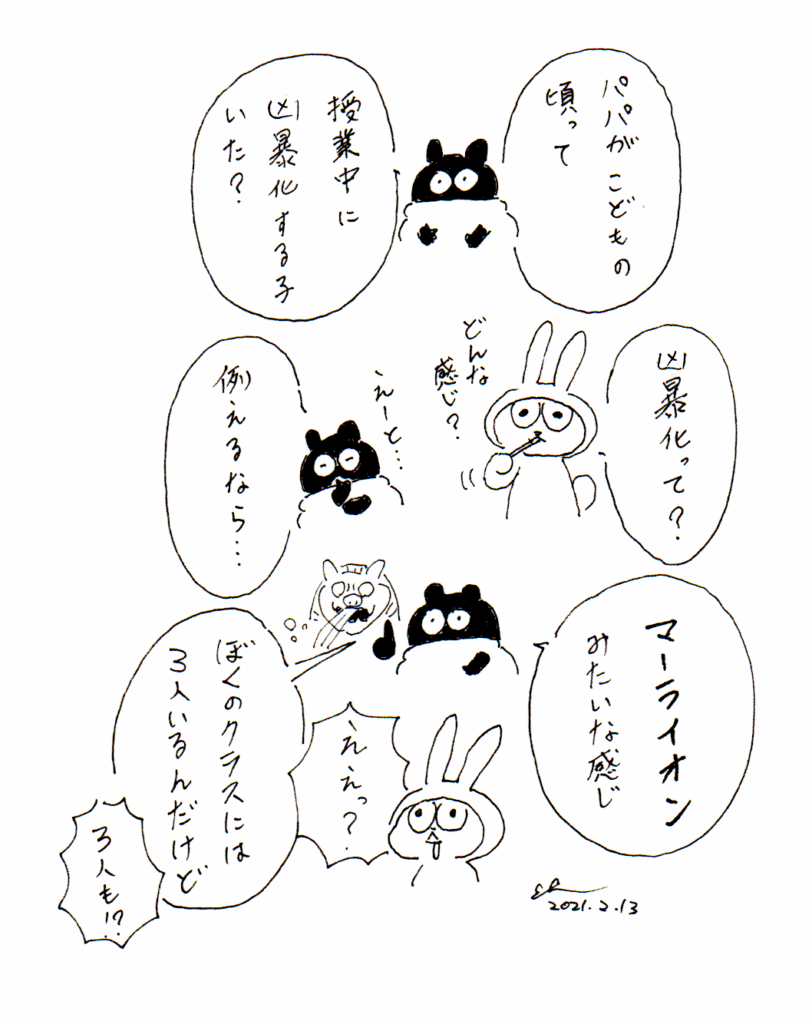 パパがこどもの
頃って
授業中に
凶暴化する子
いた?
凶暴化って?
どんな
感じ?
えーと…
例えるなら…
マーライオン
みたいな感じ
ぼくのクラスには
3人いるんだけど
ええっ?
3人も!?
2021.2.13